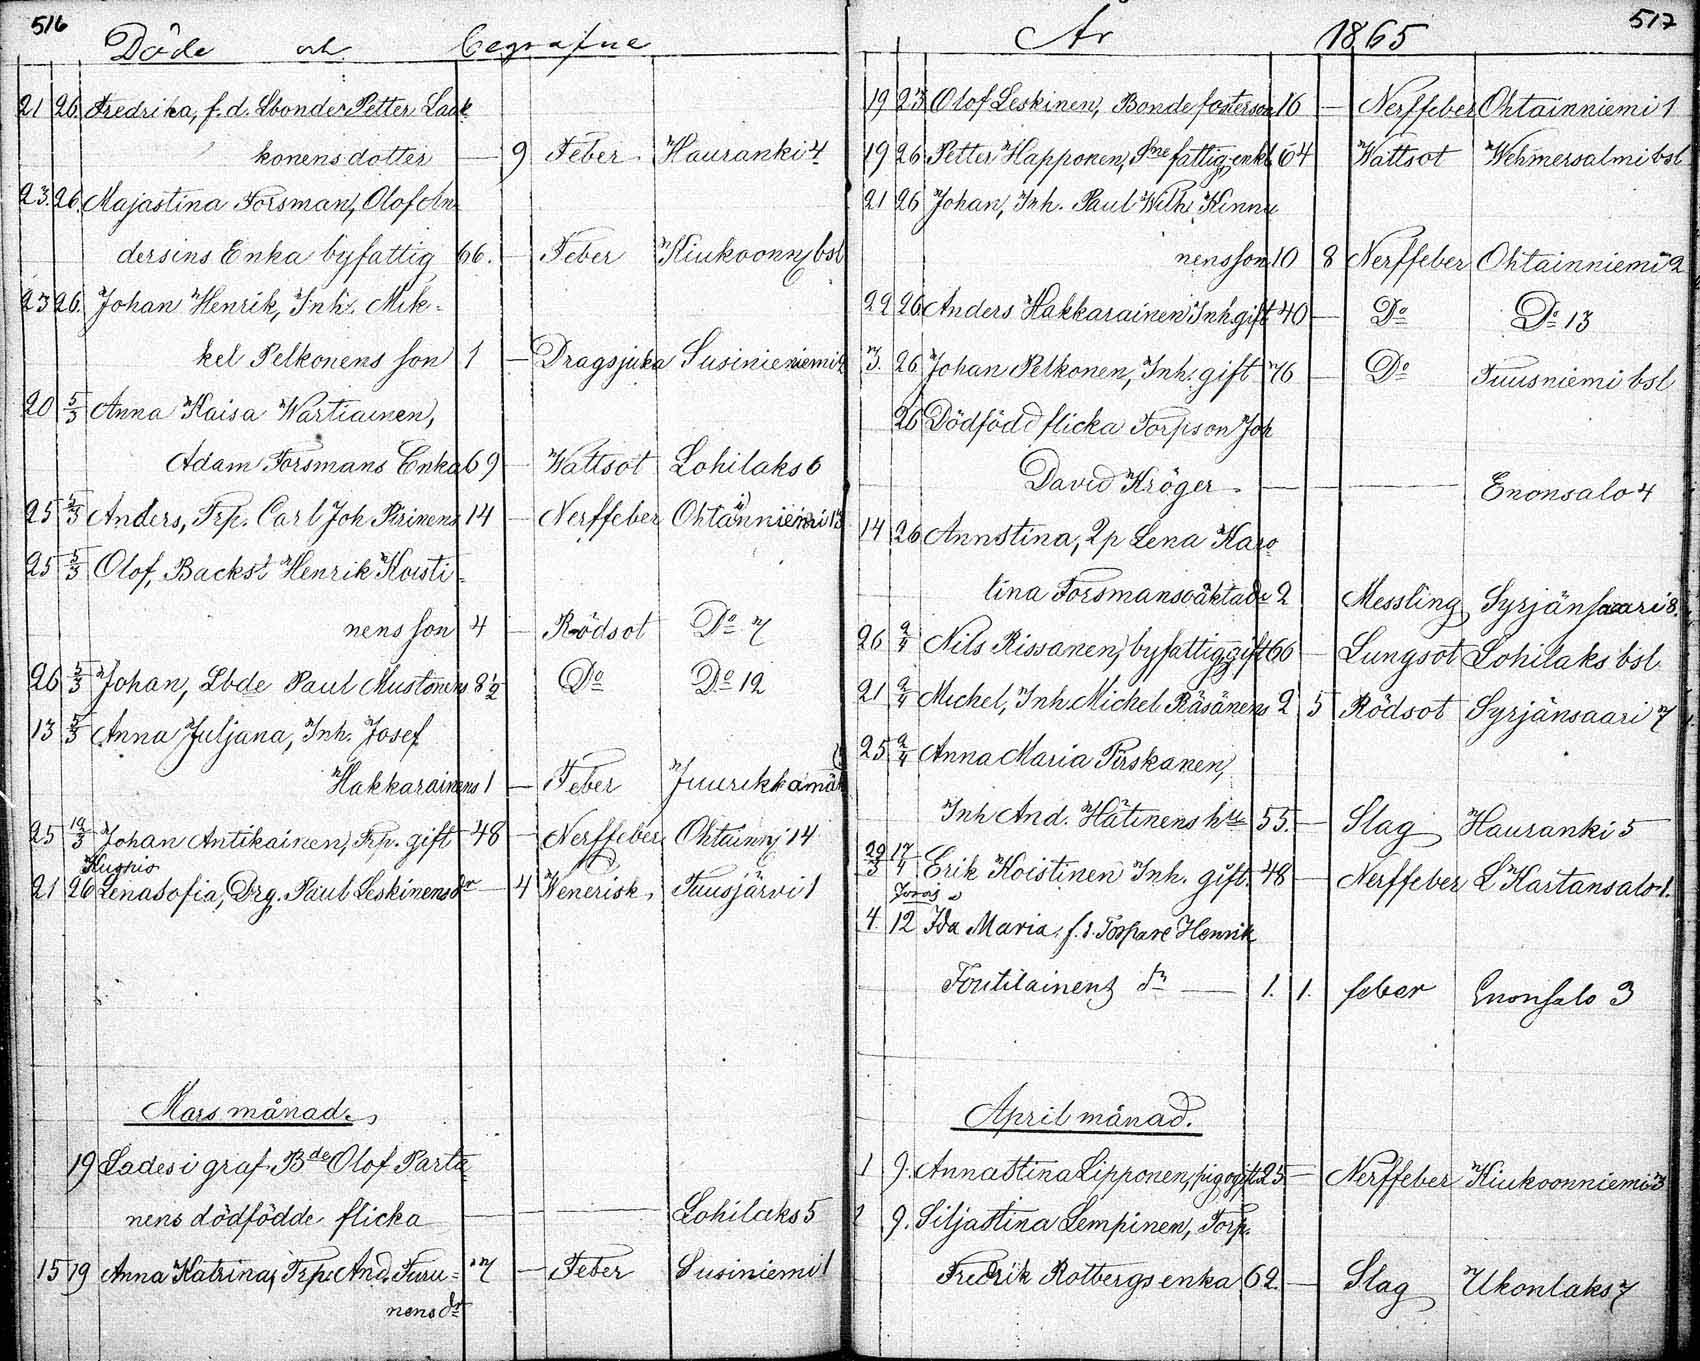 516
Döde och begrafne
21 26. Fredrika, f.d. Lbonder Petter Laak
konens dotter — 9 Feber Hauranki 4
23. 26. Majastina Forsman, Olof An
dersins Enka byfattig 66. — Feber Kiukoonny bsl
23 26. Johan Henrik, Inh. Mik-
kel Pelkonens son 1 — Dragsjuka Susinieniemi 2
20 5/3 Anna Kaisa Wartiainen,
Adam Forsmans Enka 69 — Wattsot Lohilaks 6
25 5/3 Anders, Trp. Carl Joh Pirinens 14 — Nerffeber Ohtainniemi 13
25 5/3 Olof, Backst Henrik Koisti-
nens son 4 — Rödsot Do 7
26 5/3 Johan, Lbde Paul Mustonens 8 1/2 Do Do 12
13 5/3 Anna Juljana, Inh. Josef
Hakkarainens 1 — Feber Juurikkamäki
25 19/3 Johan Antikainen, Trp. gift 48 — Nerffeber Ohtainny 14
Kuopio
21 26 Lenasofia, Drg. Paul Leskinens dr — 4 Wenerisk Tuusjärvi 1
Mars månad.
19 Lades i graf. Bde Olof Parta
nens dödfödde flicka — — Lohilaks 5
15 19 Anna Katrina, Trp. And. Turu= 7 — Feber Susiniemi 1
nens dr
517
År 1865
19 23 Olof Leskinen, Bonde fosterson 16 — Nerffeber Ohtainniemi 1
19 26 Petter Happonen, Sne fattig, enkl 64 Wattsot Wehmersalmi bsl
21 26 Johan, Inh. Paul Wilh Kinnu
nens son 10 8 Nerffeber Ohtainniemi 2
22 26 Anders Hakkarainen Inh. gift 40 — Do Do 13
3. 26 Johan Pelkonen, Inh. gift 76 — Do Tuusniemi bsl
26 Dödfödd flicka Torpson Joh
David Kröger — — — Enonsalo 4
14 26 Annstina, 2p Lena Karo
lina Forsmans oäktade 2 Messling Syrjänsaari 8.
26 2/4 Nils Rissanen, byfattig gift 66 — Lungsot Lohilaks bsl
21 2/4 Michel, Inh. Michel Räsänens 2 5 Rödsot Syrjänsaari 7
25 2/4 Anna Maria Pirskanen,
Inh And. Hätinens hu 55. — Slag Hauranki 5
29/3 17/4 Erik Koistinen Inh. gift. 48 — Nerffeber L Kartansalo 1.
Jorois
4. 12 Ida Maria, f.d. Torpare Henrik
Toutilainens dr — 1. 1. feber Enonsalo 3
April månad.
1 9. Annastina Lipponen, pig ogift 25 — Nerffeber Kiukoonniemi 3
1 9. Siljastina Lempinen, Torp.
Fredrik Rotbergs enka 62. — Slag Ukonlaks 7